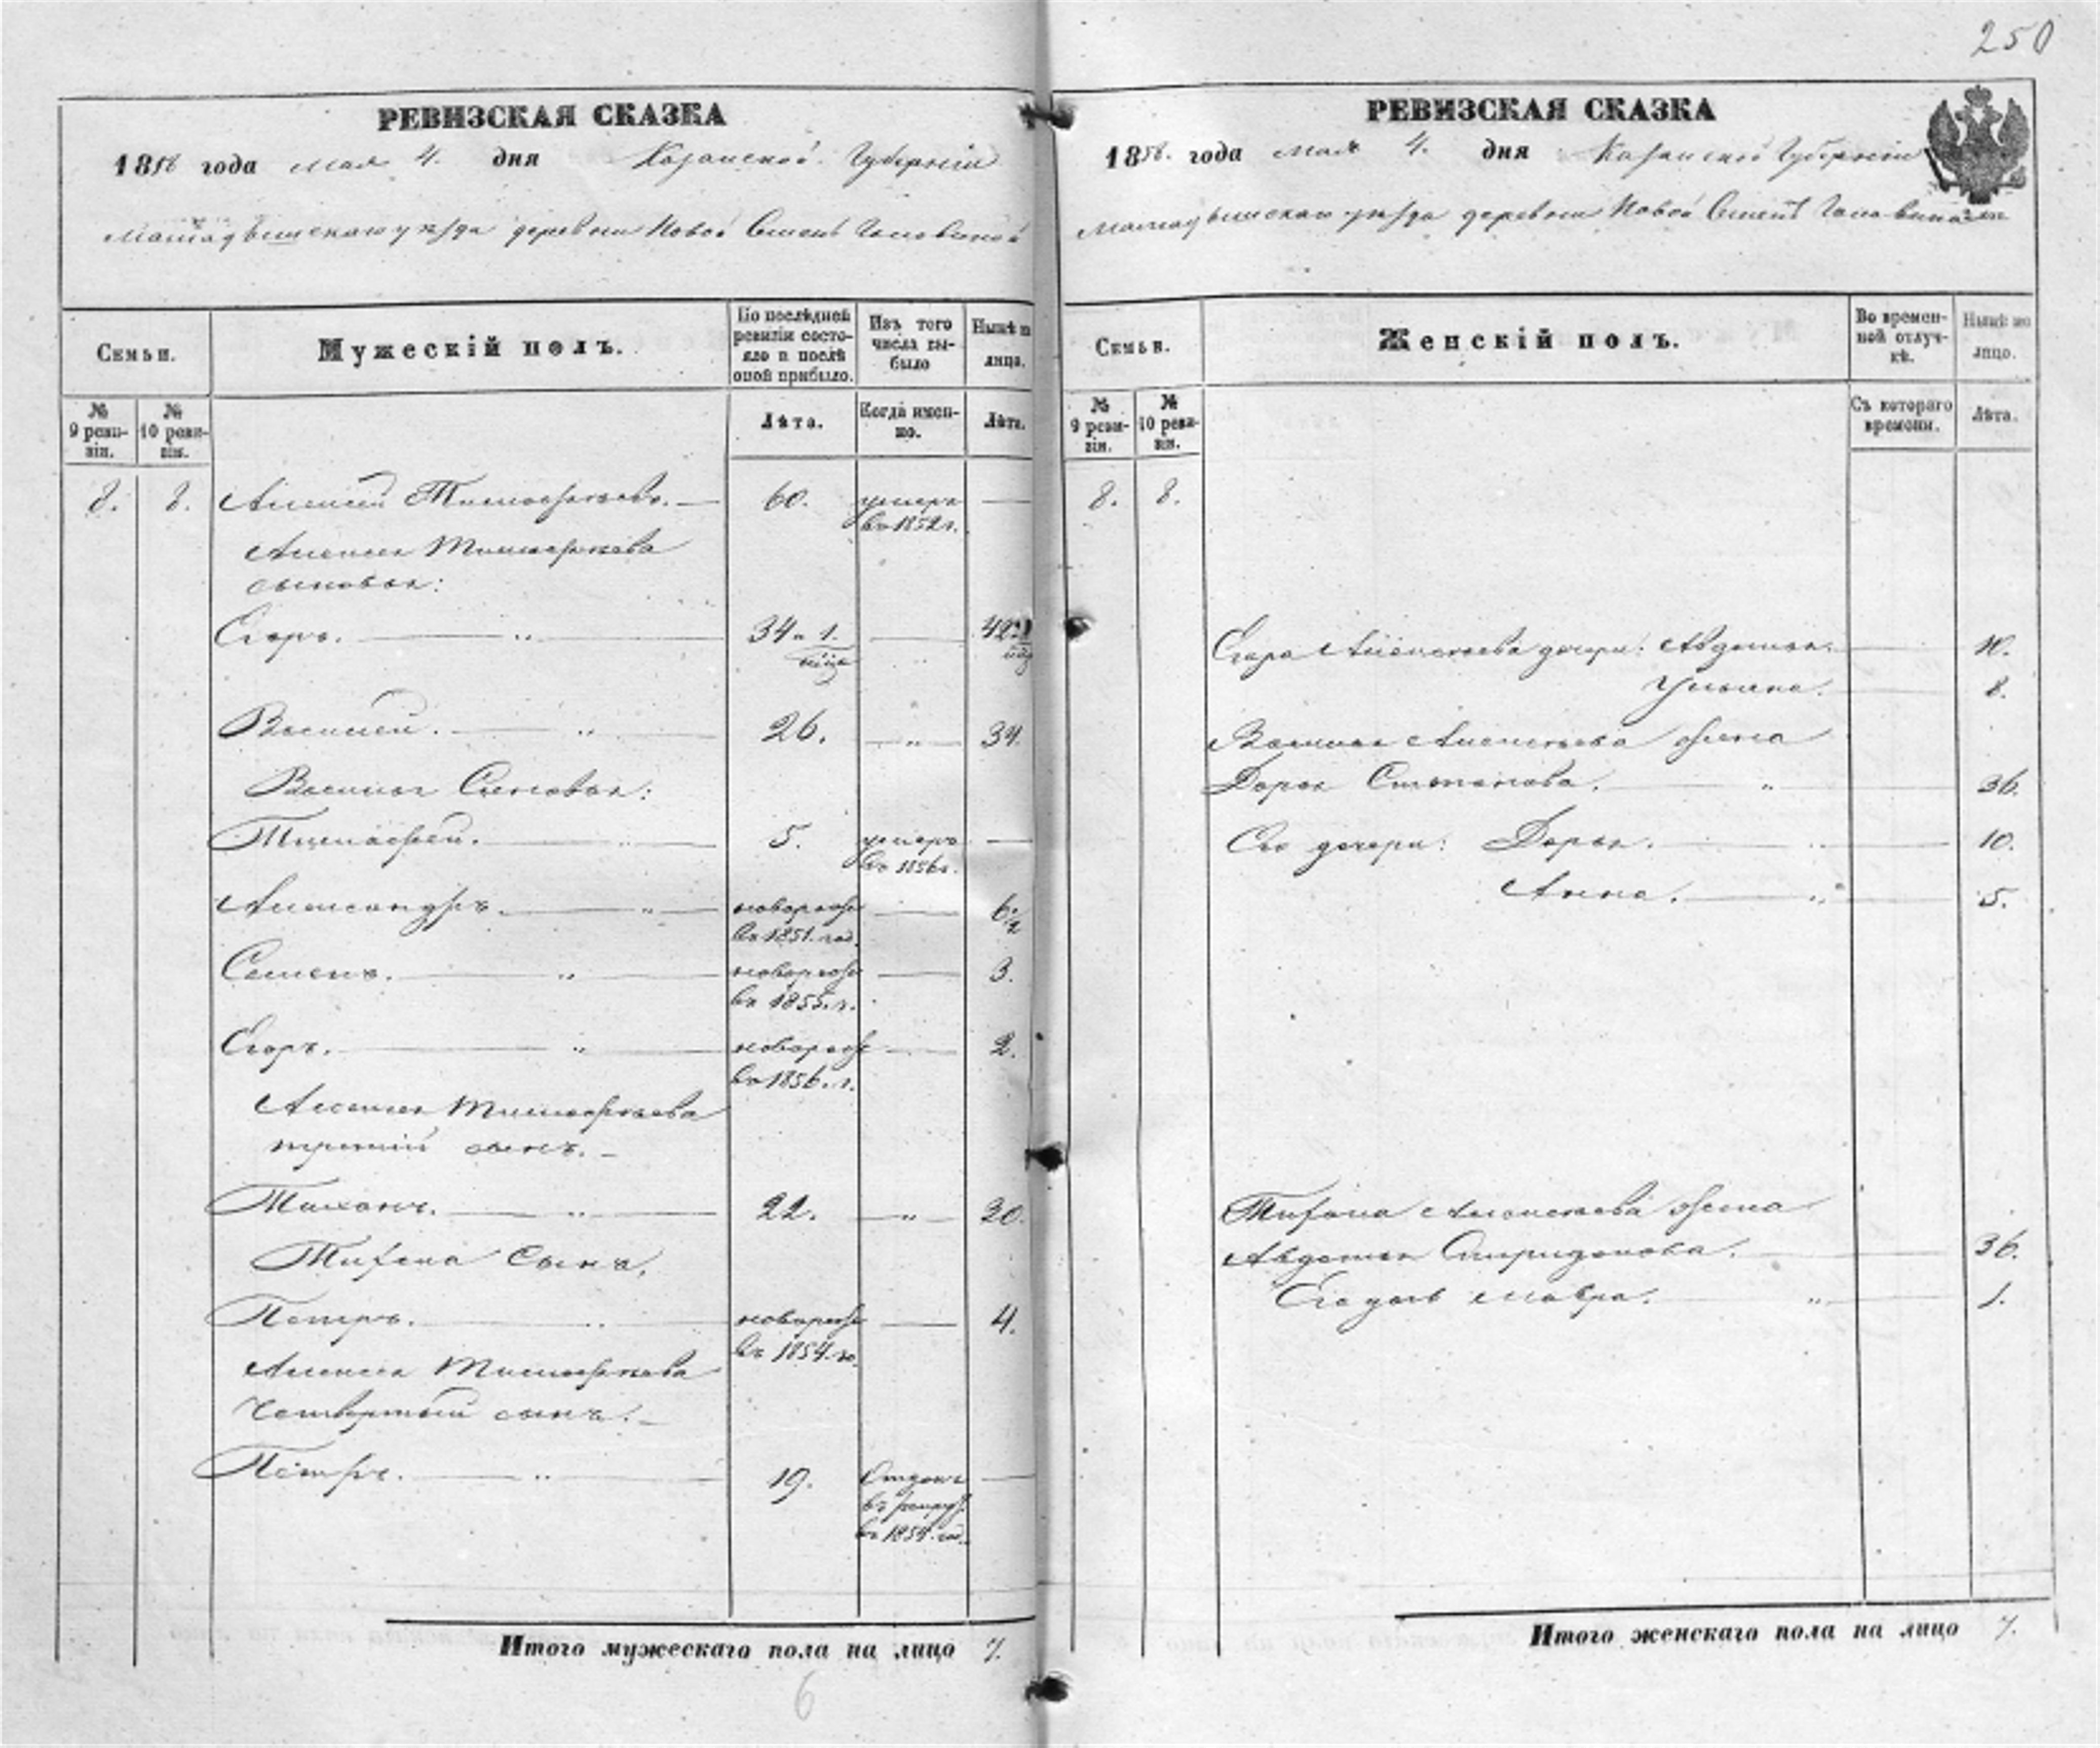 250
РЕВИЗСКАЯ СКАЗКА
1858 года мая 4. дня Казанской Губернiи
Мамадышскаго уѣзда деревни Новой
Семьи.
Мужескій полъ.
По послѣдней ревизіи состояло и послѣ оной прибыло.
Изъ того числа выбыло
Нынѣ на лицо.
№ 9 ревизіи.
№ 10 ревизіи.
Лѣта.
Когда именно.
Лѣта.
8. 8. Алексей Тимофеевъ. 60. умеръ
въ 1852 г.
Алексея Тимофеева
сыновья:
Егоръ. 34 и 1. 42
Василей. 26. 34.
Василья Сыновья:
Тимофей. 5. умеръ
въ 1856 г.
Александръ. новорож 6 1/2
въ 1851. год.
Семенъ. новорож 3.
въ 1855. г.
Егоръ. новорож 2.
въ 1856. г.
Алексея Тимофеева
третій сынъ.
Тихонъ. 22. 30.
Тихона Сынъ.
Петръ. новорож 4.
въ 1854. го.
Алексея Тимофеева
Четвертый сынъ.
Петръ. 19. Отданъ
въ рекру
въ 1854. год.
Итого мужескаго пола на лицо 7.
6
РЕВИЗСКАЯ СКАЗКА
1858. года мая 4. дня Казанской Губернiи
Мамадышскаго уѣзда деревни Новой
Семьи.
Женскій полъ.
Во временной отлучкѣ.
Нынѣ на лицо.
№ 9 ревизіи.
№ 10 ревизіи.
Съ котораго времени.
Лѣта.
8. 8.
Егора Алексеева дочери: Авдотья. 10.
Ульяна. 8.
Василья Алексеева жена
Дарья Степанова. 36.
Его дочери: Дарья. 10.
Анна. 5.
Тихона Алексеева жена
Авдотья Спиридонова. 36.
Его дочь Мавра. 1.
Итого женскаго пола на лицо 7.